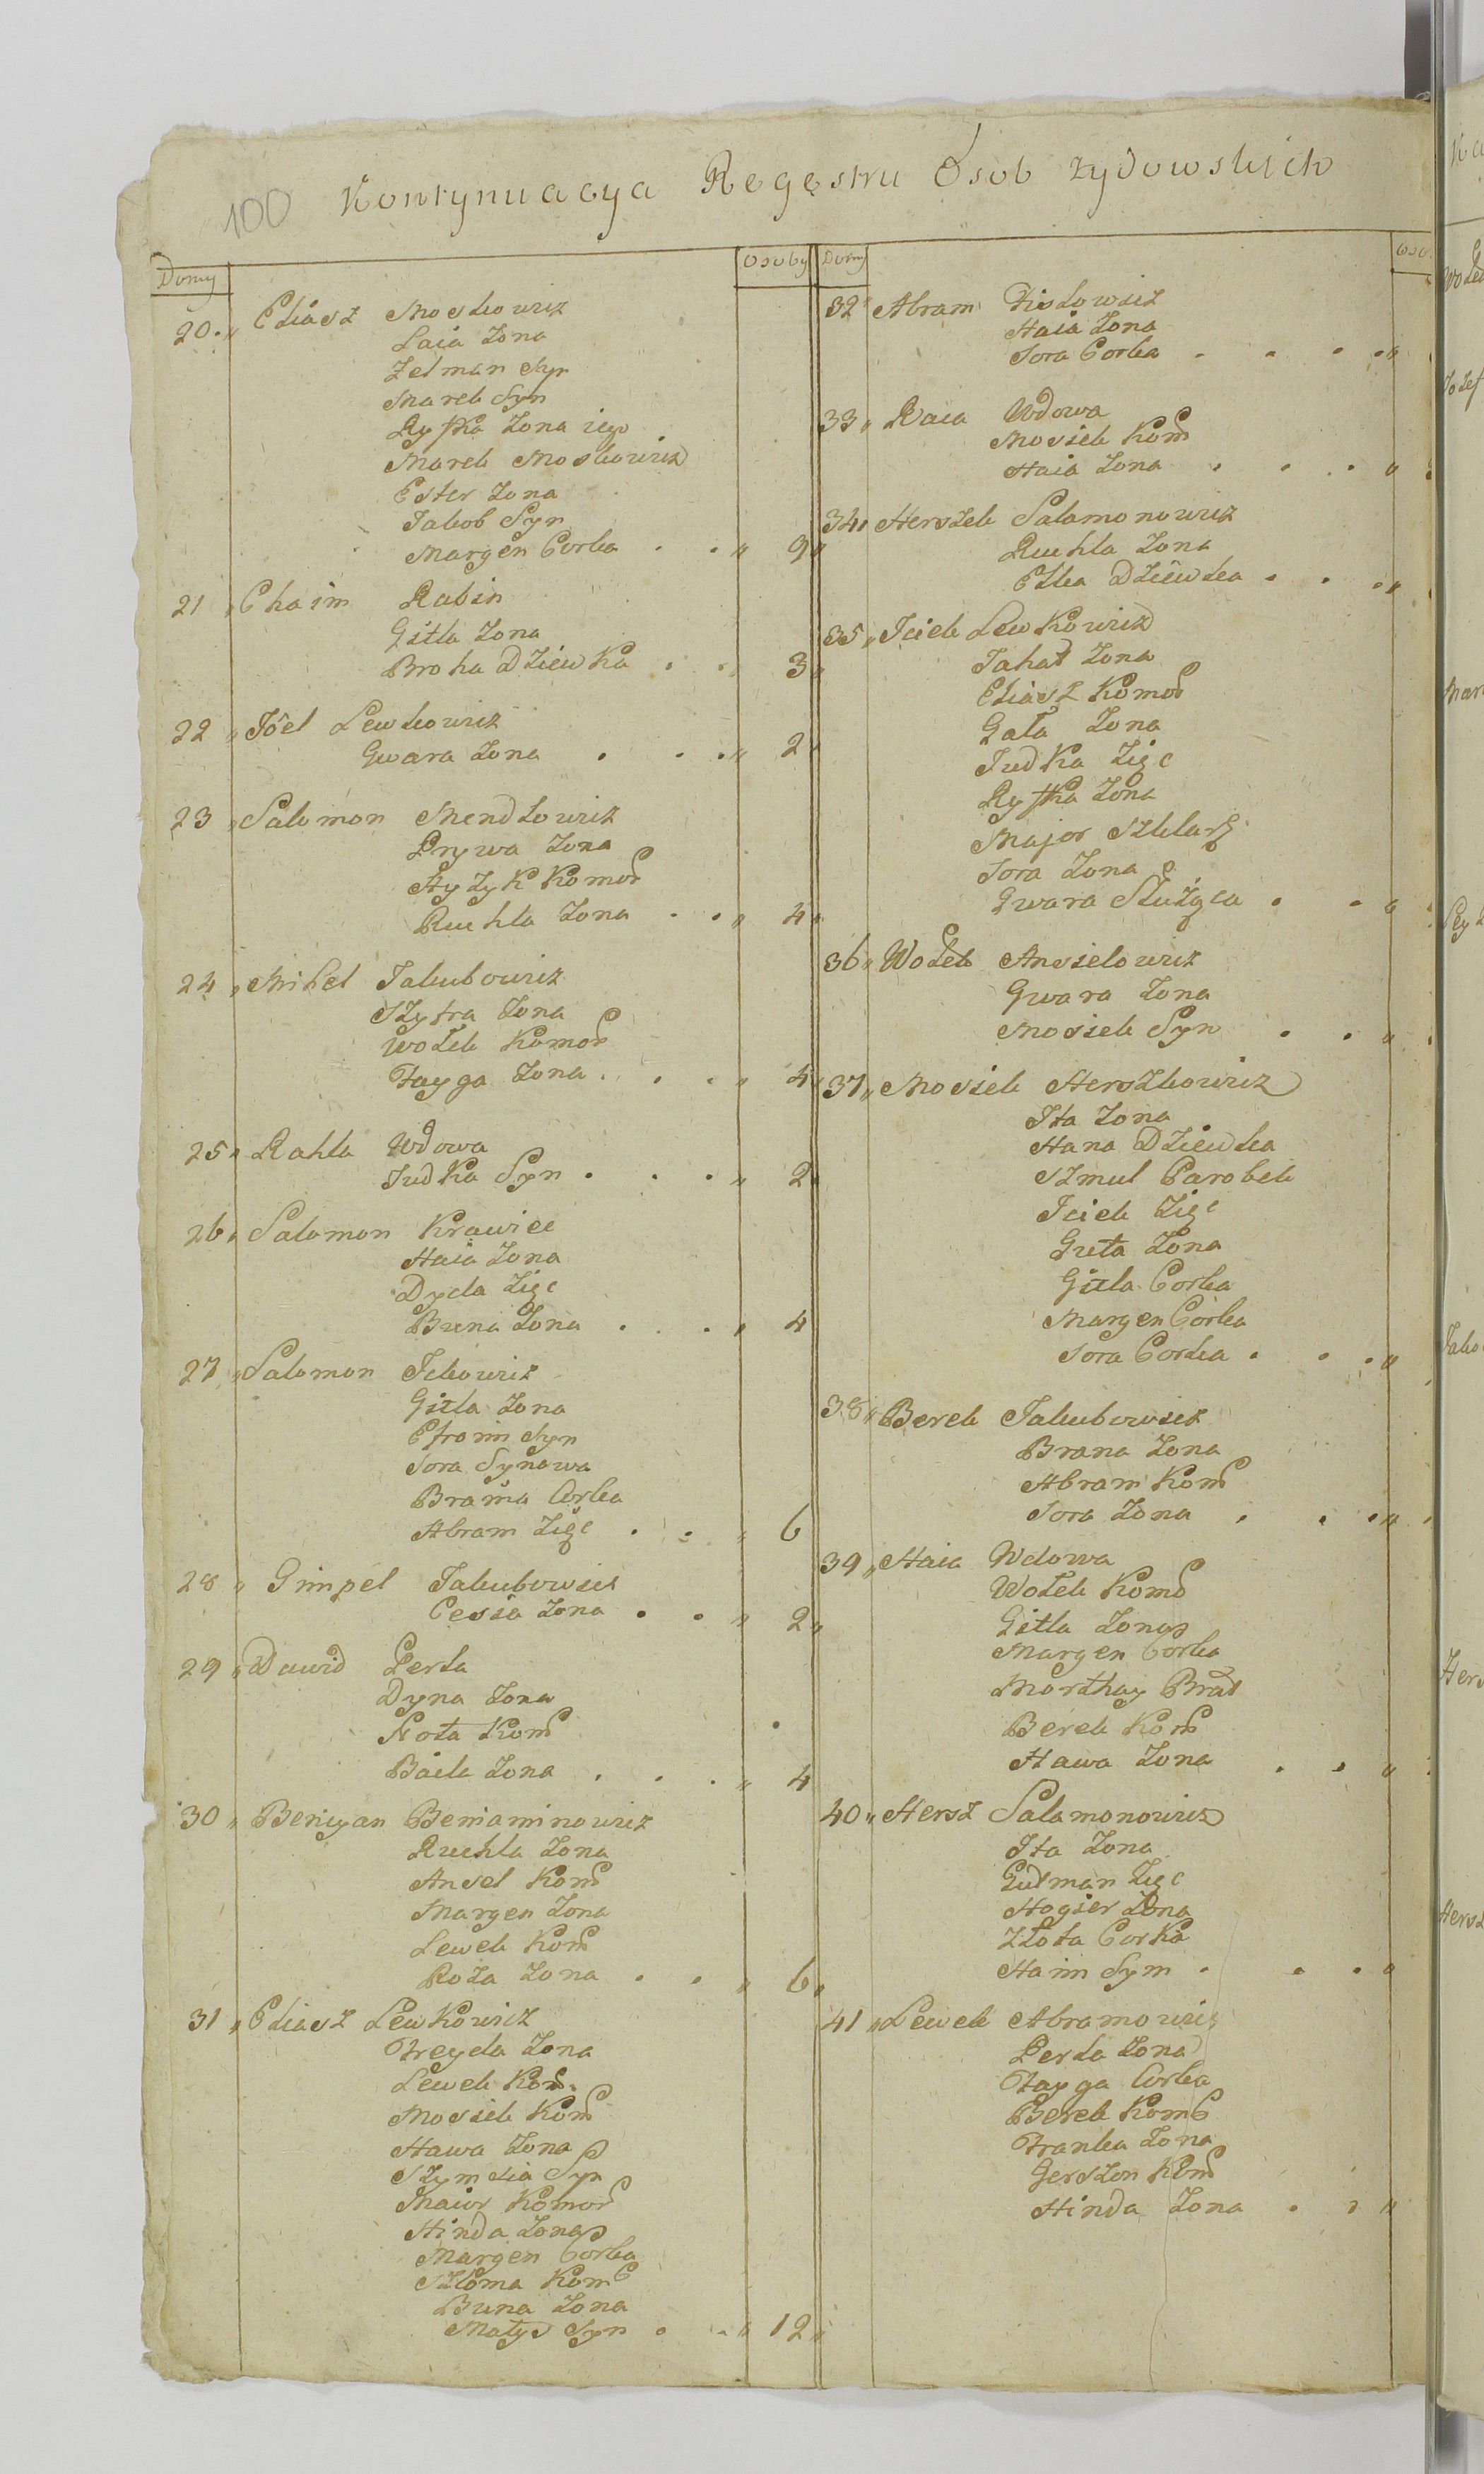 100 Kontynuacya Regęstru Osob żydowskich
Domy Osoby
20. Eliasz Moskowicz
Laia Żona
Zelman Syn
Marek Syn
Ryfka Żona iego
Marek Moskowicz
Ester Żona
Jakob Syn
Margen Corka . . 9
21 Chaim Rabin
Gitla Żona
Broha Dziewka . . 3
22 Jóel Lewkowicz
Gwara Żona . . . 2
23 Salomon Mendlowicz
Prywa Żona
Ayzyk Komor
Ruchla Żona . . 4
24 Mihel Jakubowicz
Szyfra Żona
Wolek Komor
Fayga Żona . . . 4
25 Rahla Wdowa
Judka Syn . . . 2
26 Salomon Krawiec
Haia Żona
Dyda Zięc
Buna Żona . . . 4
27 Salomon Ickowicz
Gitla Żona
Efroim Syn
Sora Synowa
Brama Corka
Abram Zięc . . 6
28 Gimpel Jakubowicz
Cesia Żona . . 2
29 Dawid Perla
Dyna Żona
Nota Kom
Baila Żona . . . 4
30 Beniyan Beniaminowicz
Ruchla Żona
Ansel Kom
Margen Żona
Lewek Kom
Roza Żona . . 6
31 Eliasz Lewkowicz
Freyda Żona
Lewek Kom.
Mosiek Kom
Hawa Żona
Szymsia Syn
Maior Komor
Hinda Żona
Margen Corka
Szloma Kom
Buna Żona
Matys Syn . . 12
Domy Oso
32 Abram Fislowicz
Haia Żona
Sora Corka . . . .
33 Raia Wdowa
Mosiek Kom
Haia Żona . . . .
34 Herszek Salamonowicz
Ruchla Żona
Etka Dziewka . . .
35 Iciek Lewkowicz
Jahat Żona
Eliasz Komor
Gala Żona
Judka Zięc
Ryfka Żona
Major Szklarz
Sora Żona
Gwara Służąca . .
36 Wolek Anszelowicz
Gwara Żona
Mosiek Syn . .
37 Mosiek Herszkowicz
Ita Żona
Hana Dziewka
Szmul Parobek
Iciek Zięc
Guta Żona
Gitla Corka
Margen Corka
Sora Corka . . .
38 Berek Jakubowicz
Brana Żona
Abram Kom
Sora Żona . . .
39 Haia Wdowa
Wolek Kom
Gitla Żona
Margen Corka
Morthay Brat
Berek Kom
Hawa Żona . .
40 Hersz Salamonowicz
Ita Żona
Gutman Zięc
Hogier Żona
Złota Corka
Haim Sym . . .
41 Lewek Abramowicz
Perla Żona
Fayga Corka
Berek Kom
Franka Żona
Gerszon Kom
Hinda Żona . .